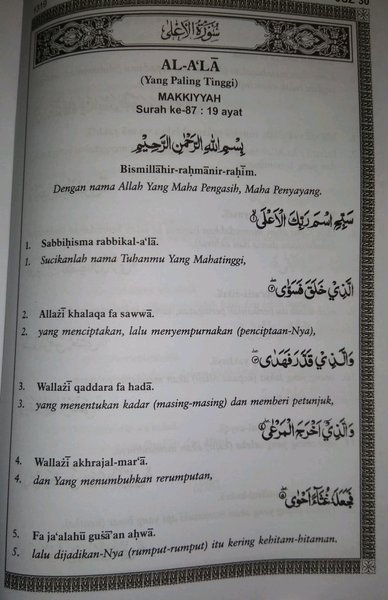 1319
JUZ 30
سُوْرَةُ الْاَعْلٰى
AL-A‘LĀ
(Yang Paling Tinggi)
MAKKIYYAH
Surah ke-87 : 19 ayat
بِسْمِ اللّٰهِ الرَّحْمٰنِ الرَّحِيْمِ
Bismillāhir-raḥmānir-raḥīm.
Dengan nama Allah Yang Maha Pengasih, Maha Penyayang.
سَبِّحِ اسْمَ رَبِّكَ الْاَعْلَىۙ ١
1. Sabbiḥisma rabbikal-a‘lā.
1. Sucikanlah nama Tuhanmu Yang Mahatinggi,
الَّذِيْ خَلَقَ فَسَوّٰىۖ ٢
2. Allażī khalaqa fa sawwā.
2. yang menciptakan, lalu menyempurnakan (penciptaan-Nya),
وَالَّذِيْ قَدَّرَ فَهَدٰىۖ ٣
3. Wallażī qaddara fa hadā.
3. yang menentukan kadar (masing-masing) dan memberi petunjuk,
وَالَّذِيْٓ اَخْرَجَ الْمَرْعٰىۖ ٤
4. Wallażī akhrajal-mar‘ā.
4. dan Yang menumbuhkan rerumputan,
فَجَعَلَهٗ غُثَاۤءً اَحْوٰىۖ ٥
5. Fa ja‘alahū guṡā'an aḥwā.
5. lalu dijadikan-Nya (rumput-rumput) itu kering kehitam-hitaman.